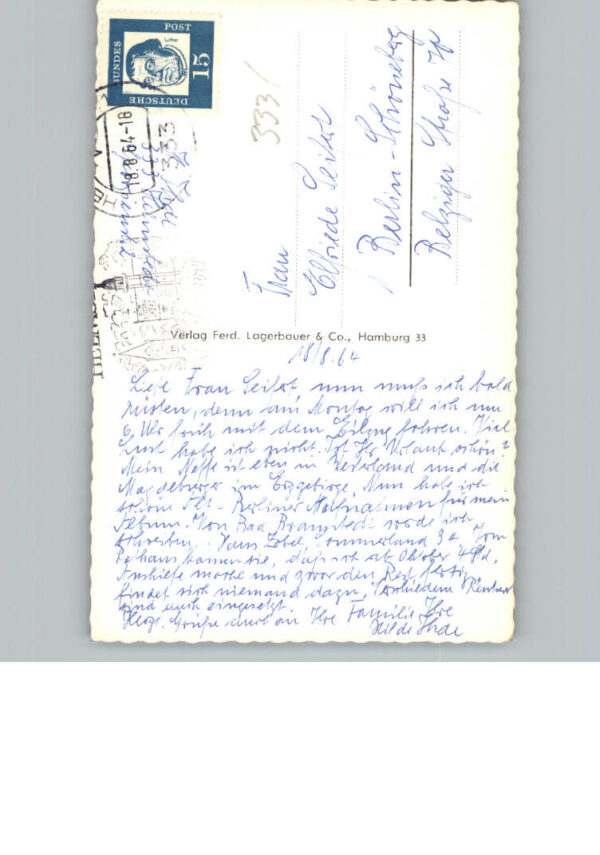 DEUTSCHE
BUNDES
POST
15
Luther
18.8.64-18
333
333
Frau
Elfriede Seifert
Berlin-Schöneberg
Belziger Straße
Verlag Ferd. Lagerbauer & Co., Hamburg 33
18/8.64
Liebe Frau Seifert, nun muß ich bald
rüsten, denn am Montag will ich um
6 Uhr früh mit dem Eilzug fahren. Viel
Lust habe ich nicht. Ist Ihr Urlaub schön?
Mein Neffe ist eben in und die
Magdeburger im Erzgebirge. Nun habe ich
schöne Alt-Berliner Aufnahmen für mein
Album. Von Bad Bramstedt werde ich
schreiben. Vom
Rathaus kamen sie, daß ich ab Oktober 4 Std.
Aushilfe mache und zwar den Rest
findet sich niemand dazu. Rentner
sind auch eingesetzt.
Herzl. Grüße auch an Ihre Familie Ihre
Hilde